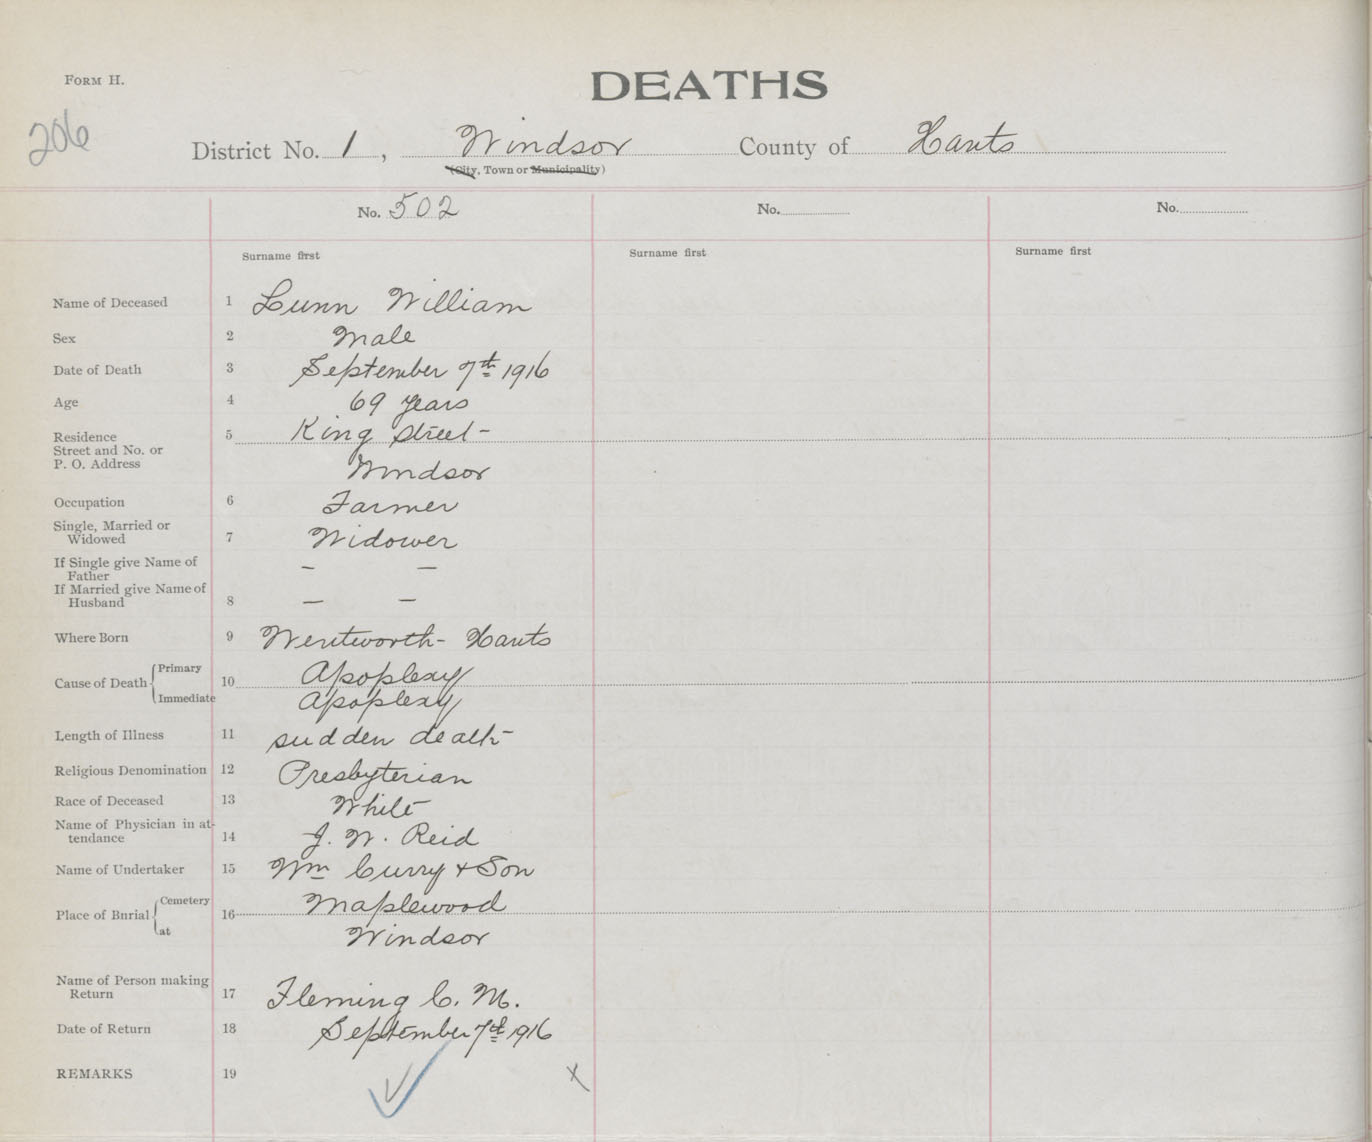 FORM H.
DEATHS
206
District No. 1, Windsor County of Hants
(City, Town or Municipality)
No. 502 No. No.
Surname first Surname first Surname first
Name of Deceased 1 Lunn William
Sex 2 Male
Date of Death 3 September 7th 1916
Age 4 69 years
Residence 5 King Street
Street and No. or
P. O. Address Windsor
Occupation 6 Farmer
Single, Married or
Widowed 7 Widower
If Single give Name of — —
Father
If Married give Name of
Husband 8 — —
Where Born 9 Wentworth - Hants
Cause of Death Primary 10 Apoplexy
Immediate Apoplexy
Length of Illness 11 sudden death
Religious Denomination 12 Presbyterian
Race of Deceased 13 White
Name of Physician in at-
tendance 14 J. W. Reid
Name of Undertaker 15 Wm Curry + Son
Place of Burial Cemetery 16 Maplewood
at Windsor
Name of Person making
Return 17 Fleming C. M.
Date of Return 18 September 7th 1916
REMARKS 19 x